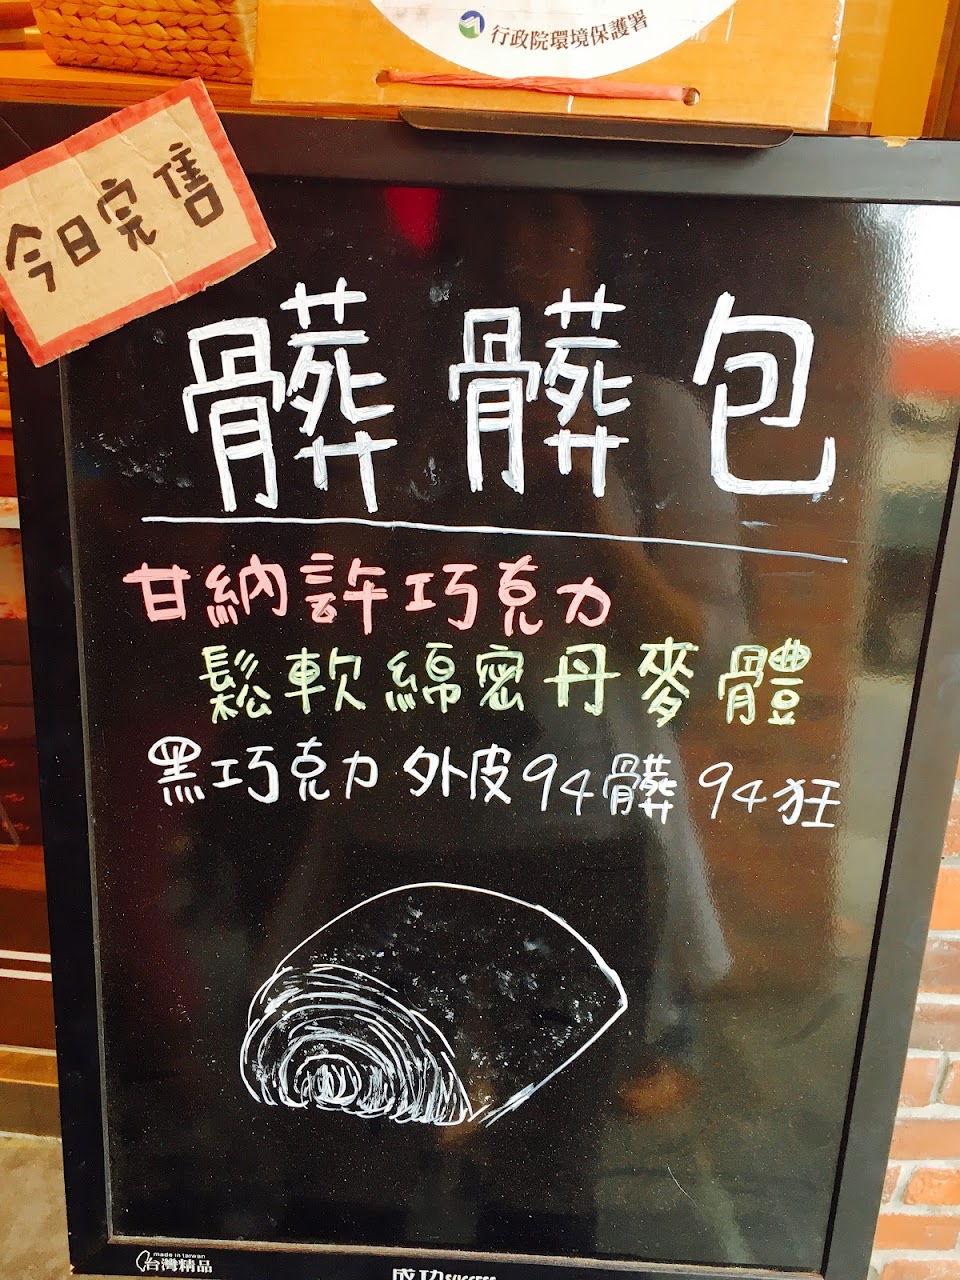 行政院環境保護署
今日完售
髒髒包
甘納許巧克力
鬆軟綿密丹麥體
黑巧克力外皮94髒 94狂
made in taiwan
台灣精品
成功success